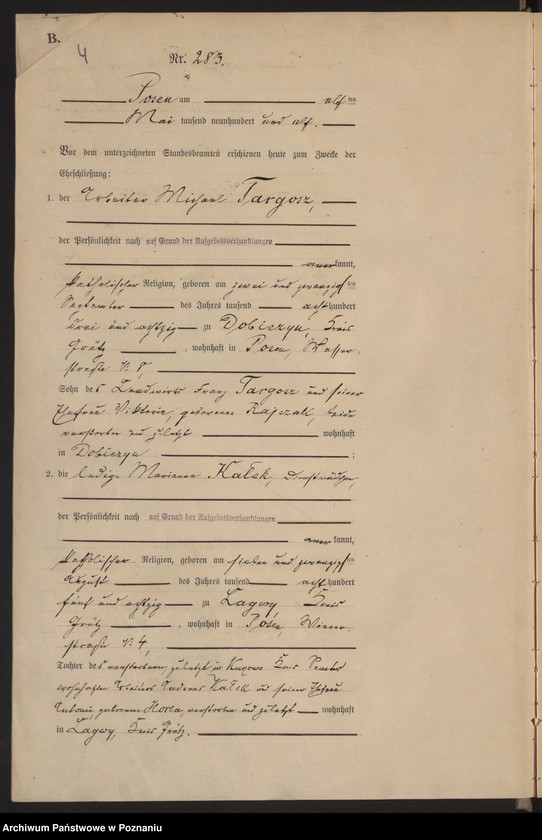 B.
4
Nr. 283.
Posen am elf ten
Mai tausend neunhundert und elf.
Vor dem unterzeichneten Standesbeamten erschienen heute zum Zwecke der
Eheschließung:
1. der Arbeiter Michael Targosz,
der Persönlichkeit nach auf Grund der Aufgebotsverhandlungen
anerkannt,
katholischer Religion, geboren am zwei und zwanzigsten
September des Jahres tausend achthundert
drei und achtzig zu Dobieżyn, Kreis
Grätz, wohnhaft in Posen, Wasser-
straße N.
Sohn des Landwirts Franz Targosz und seiner
Ehefrau Viktoria, geborenen Rajczak, beide
verstorben und zuletzt wohnhaft
in Dobieżyn;
2. die ledige Marianna Kałek, Dienstmädchen,
der Persönlichkeit nach auf Grund der Aufgebotsverhandlungen
anerkannt,
katholischer Religion, geboren am sieben und zwanzigsten
August des Jahres tausend achthundert
fünf und achtzig zu Łagwy, Kreis
Grätz, wohnhaft in Posen, Wiener-
straße N. 4,
Tochter des verstorbenen, zuletzt in Kreis
wohnhaften Arbeiters Andreas Kałek und seiner Ehefrau
Antonie, geborenen Horla, verstorben und zuletzt wohnhaft
in Łagwy, Kreis Grätz.
Archiwum Państwowe w Poznaniu